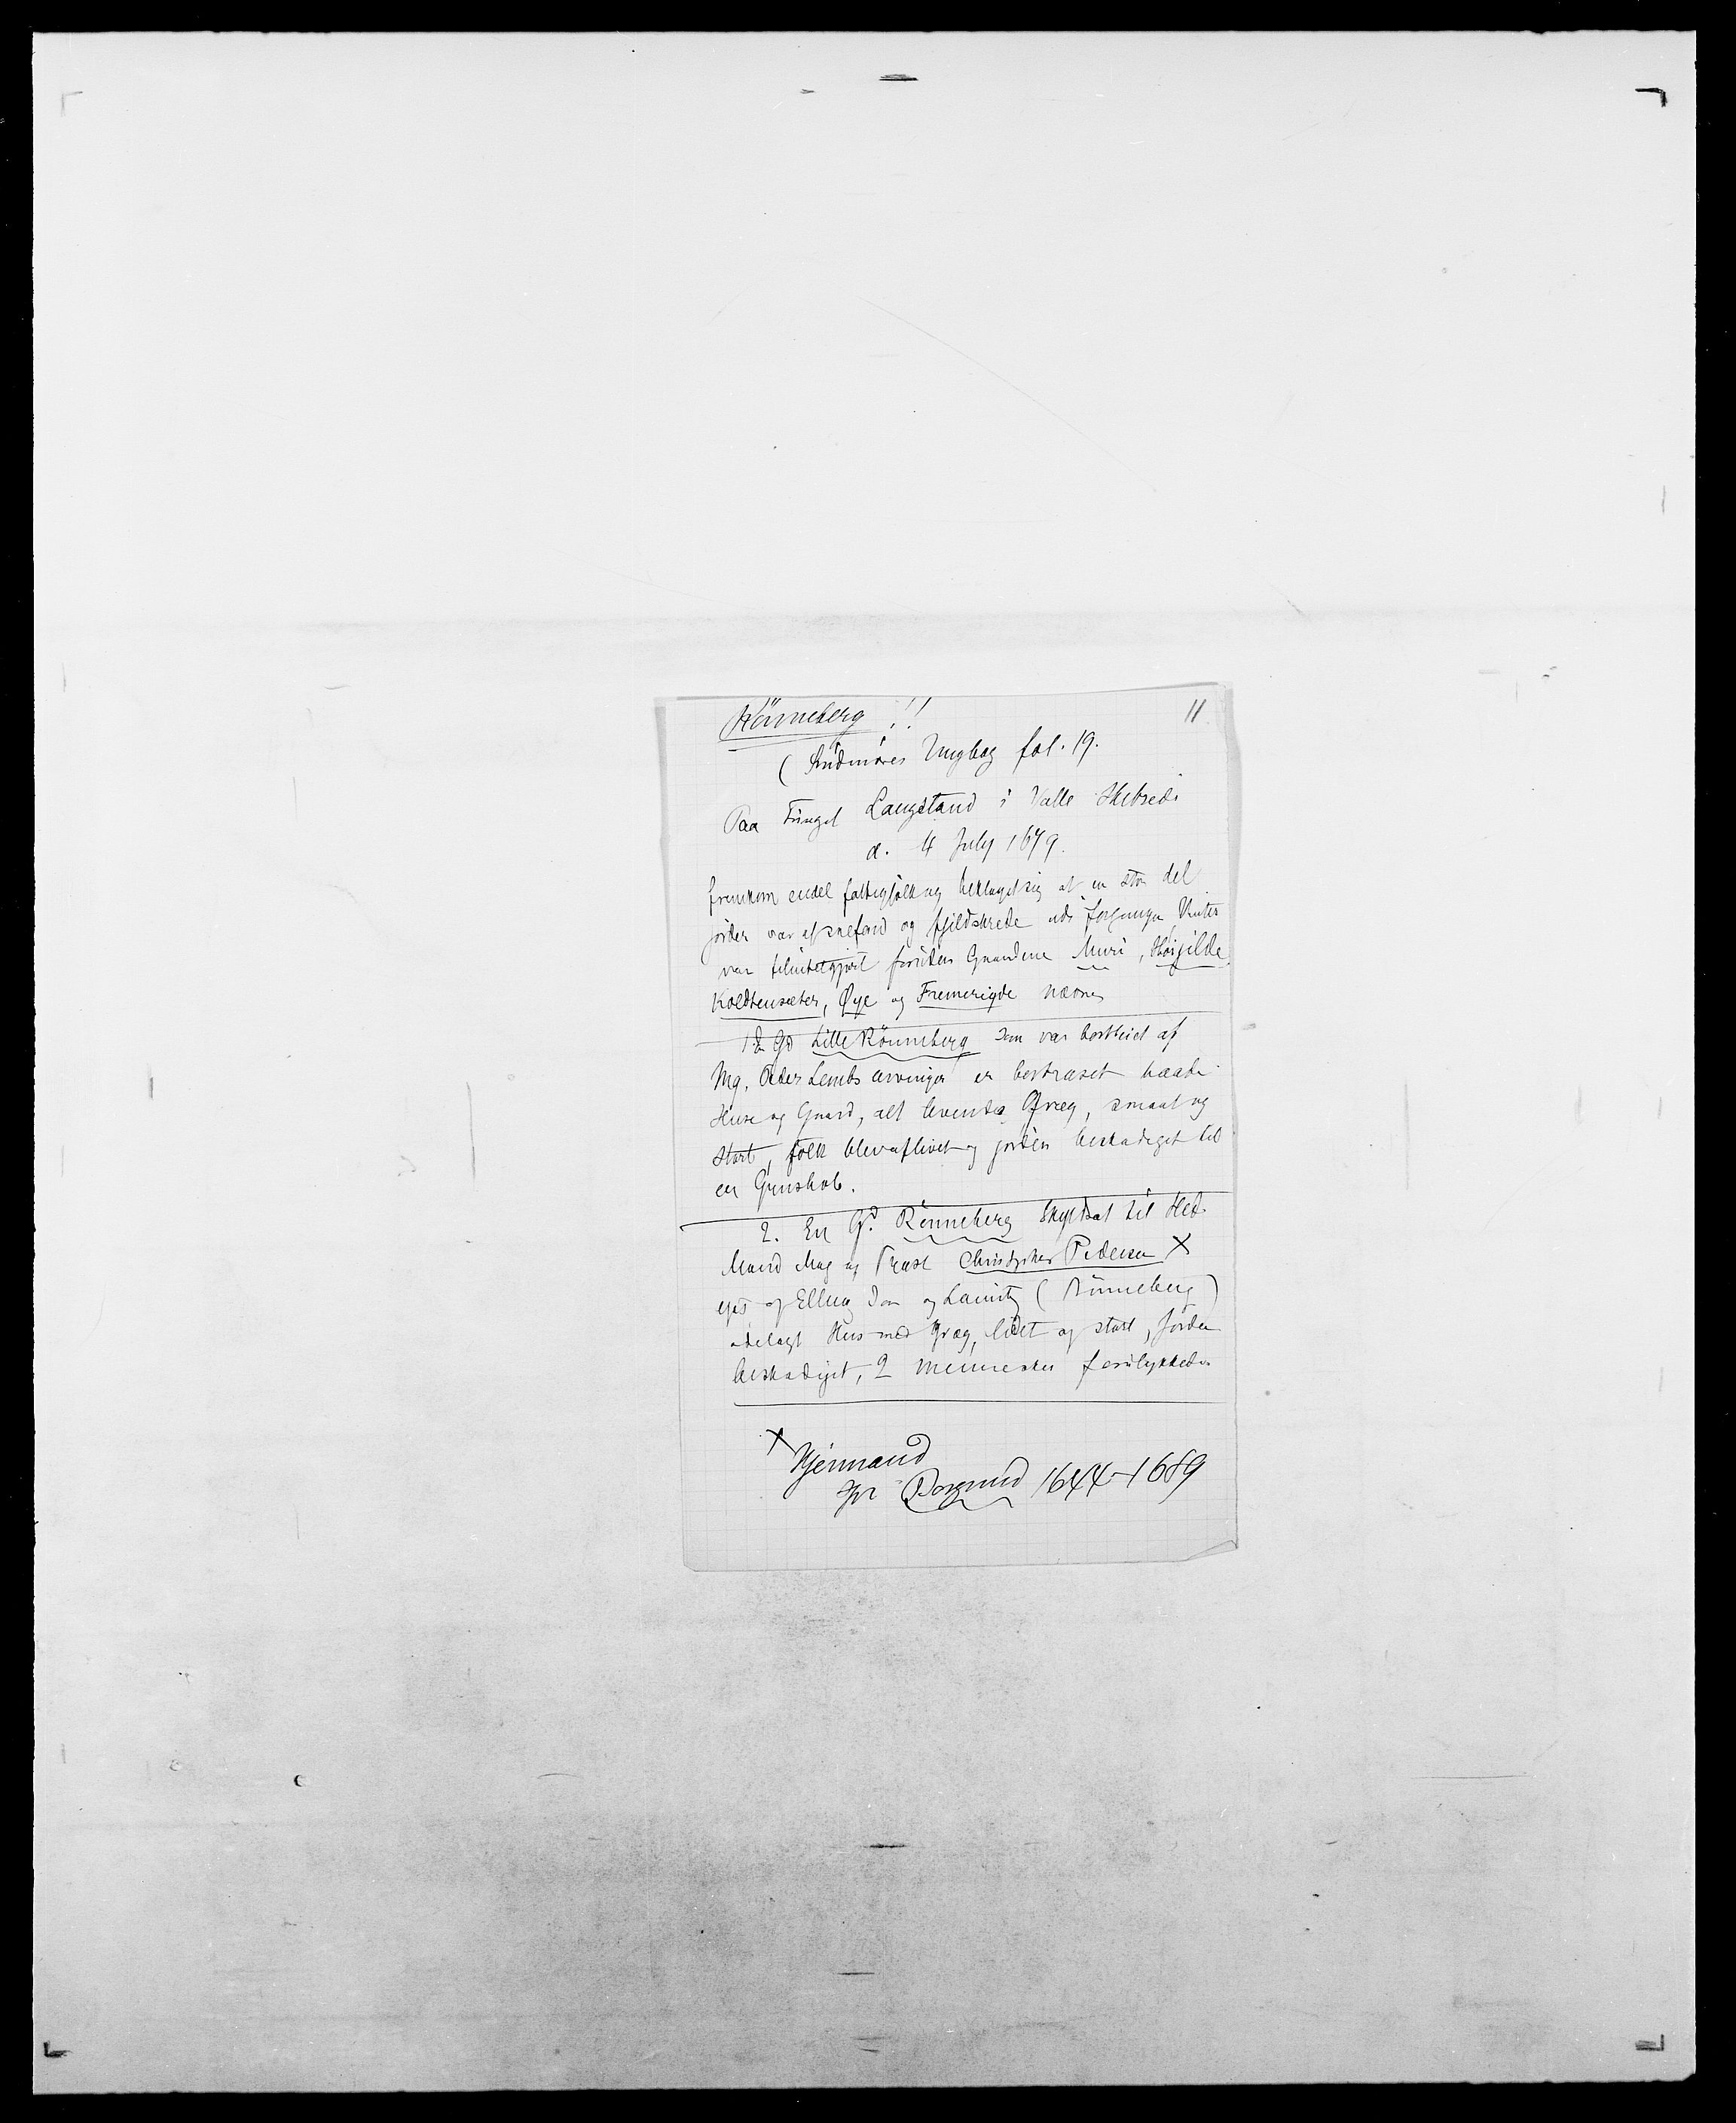 Rönneberg !! 11
( Søndmøres Tingbog fol. 19.
Paa Tinget Langstand i Valle Skibredi
d. 4 July 1679.
fremkom endel fattigfolk og beklaged sig at en stor del
jorder var af snefond og fjeldskrede udi forgangen Vinter
var tilintetgjort foruden Gaardene Muri, Høigilde
Koldtensæter, Øye og Fremerigde nævnes
1 En Gd Lille Rönneberg som var bortbeiet af
Mg. Peder Lembs arvinger er bortraset baade
Huse og Gaard, alt levende Qvæg, smaat og
stort, folk blev aflivet og jorden beskadiget til
en Grushob.
2. En Gd. Rönneberg skyldsat til Hed.
Mand Mag og Provst Christopher Pedersen X
eyes af Elling Ion og Lauritz (Rönneberg)
ødelagt Hus med Qvæg, lidet og stort, Jorden
beskadiget, 2 mennesker forulykkede
X Hjermand
Spr Borgund 1644-1689